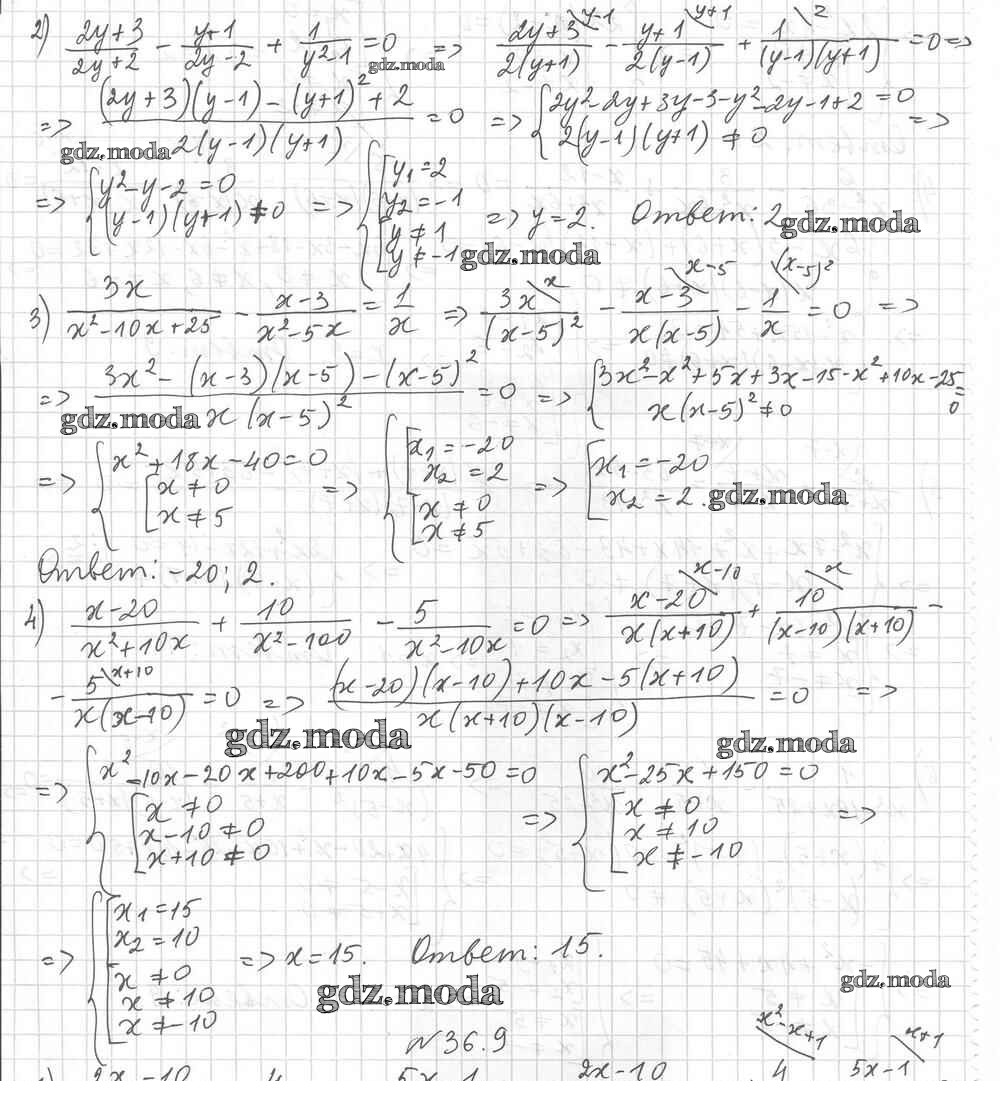 2) (2y+3)/(2y+2) - (y+1)/(2y-2) + 1/(y²-1) = 0 => (2y+3)\y-1/(2(y+1)) - (y+1)\y+1/(2(y-1)) + 1\2/((y-1)(y+1)) = 0 =>
gdz.moda
=> ((2y+3)(y-1) - (y+1)² + 2)/(2(y-1)(y+1)) = 0 => { 2y²-2y+3y-3-y²-2y-1+2 = 0
2(y-1)(y+1) ≠ 0 =>
gdz.moda
=> { y²-y-2 = 0
(y-1)(y+1) ≠ 0 => { [ y₁=2
y₂=-1
[ y≠1
y≠-1 => y=2. Ответ: 2
gdz.moda
gdz.moda
3) 3x/(x²-10x+25) - (x-3)/(x²-5x) = 1/x => 3x\x/(x-5)² - (x-3)\x-5/(x(x-5)) - 1\(x-5)²/x = 0 =>
=> (3x² - (x-3)(x-5) - (x-5)²)/(x(x-5)²) = 0 => { 3x²-x²+5x+3x-15-x²+10x-25=0
x(x-5)² ≠ 0
gdz.moda
=> { x²+18x-40=0
[ x≠0
x≠5 => { [ x₁=-20
x₂=2
[ x≠0
x≠5 => [ x₁=-20
x₂=2.
gdz.moda
Ответ: -20; 2.
4) (x-20)/(x²+10x) + 10/(x²-100) - 5/(x²-10x) = 0 => (x-20)\x-10/(x(x+10)) + 10\x/((x-10)(x+10)) -
- 5\x+10/(x(x-10)) = 0 => ((x-20)(x-10)+10x-5(x+10))/(x(x+10)(x-10)) = 0 =>
gdz.moda
gdz.moda
=> { x²-10x-20x+200+10x-5x-50=0
[ x≠0
x-10≠0
x+10≠0 => { x²-25x+150=0
[ x≠0
x≠10
x≠-10 =>
=> { [ x₁=15
x₂=10
[ x≠0
x≠10
x≠-10 => x=15. Ответ: 15.
gdz.moda
gdz.moda
№36.9
x²-x+1 x+1
2x-10 4 5x-1 2x-10 4 5x-1